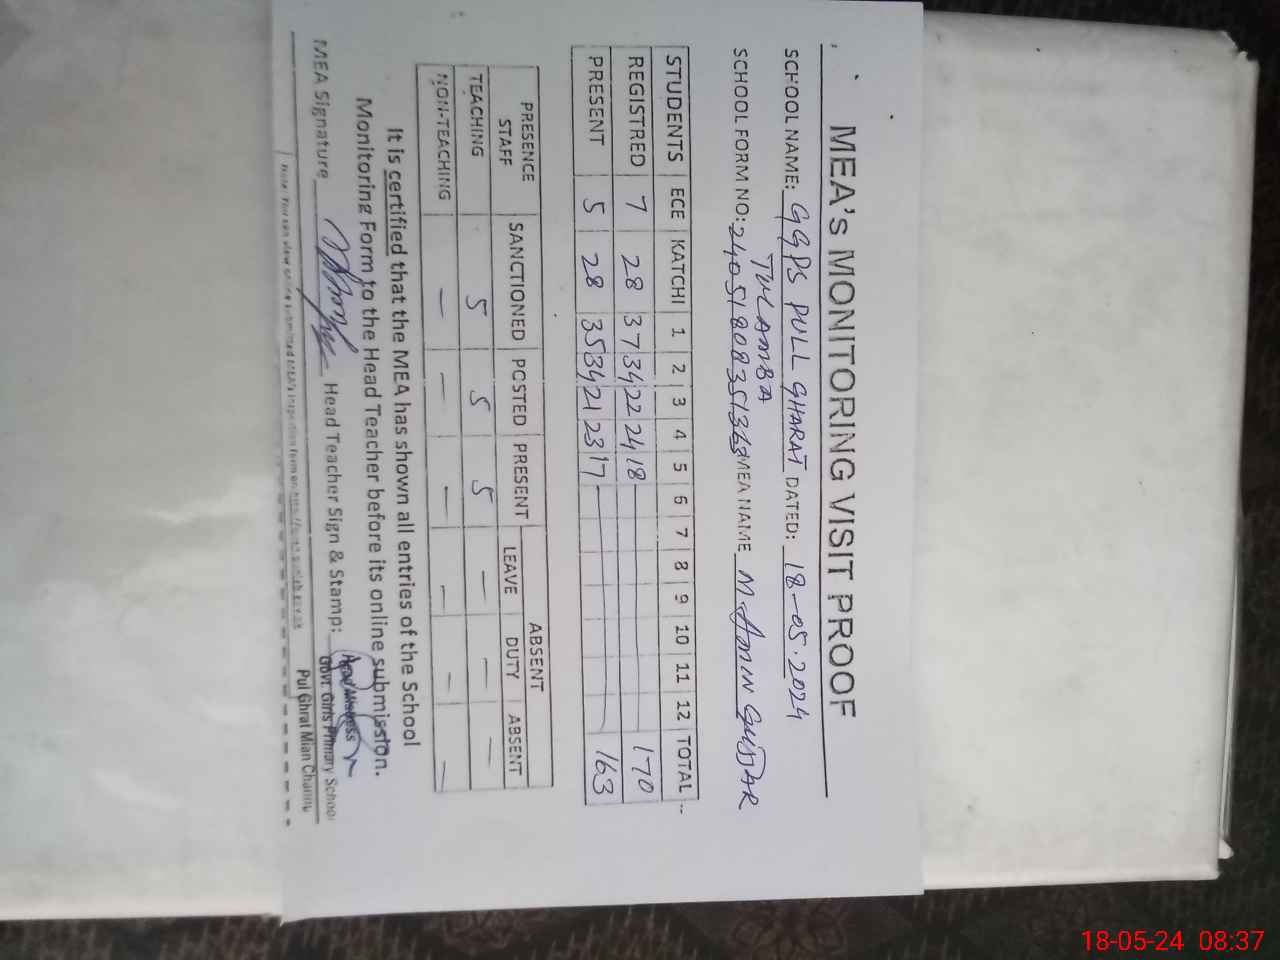 MEA's MONITORING VISIT PROOF
SCHOOL NAME: GGPS PULL GHARAT DATED: 18-05-2024
TULAMBA
SCHOOL FORM NO: MEA NAME M. Amin GUJJAR
STUDENTS ECE KATCHI 1 2 3 4 5 6 7 8 9 10 11 12 TOTAL
REGISTRED 7 28 37 34 22 24 18 170
PRESENT 5 28 35 34 21 23 17 163
PRESENCE STAFF SANCTIONED POSTED PRESENT ABSENT
LEAVE DUTY ABSENT
TEACHING 5 5 5 — — —
NON-TEACHING — — — — — —
It is certified that the MEA has shown all entries of the School
Monitoring Form to the Head Teacher before its online submission.
MEA Signature Head Teacher Sign & Stamp:
Head Mistress
Govt. Girls Primary School
Pul Ghrat Mian Channu
Note: You can view online submitted MEA's inspection form on
18-05-24 08:37